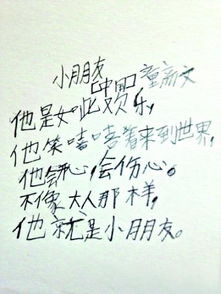 小朋友
中四 童新文
他是如此欢乐,
他笑嘻嘻着来到世界,
他会开心会伤心。
不像大人那样,
他就是小朋友。